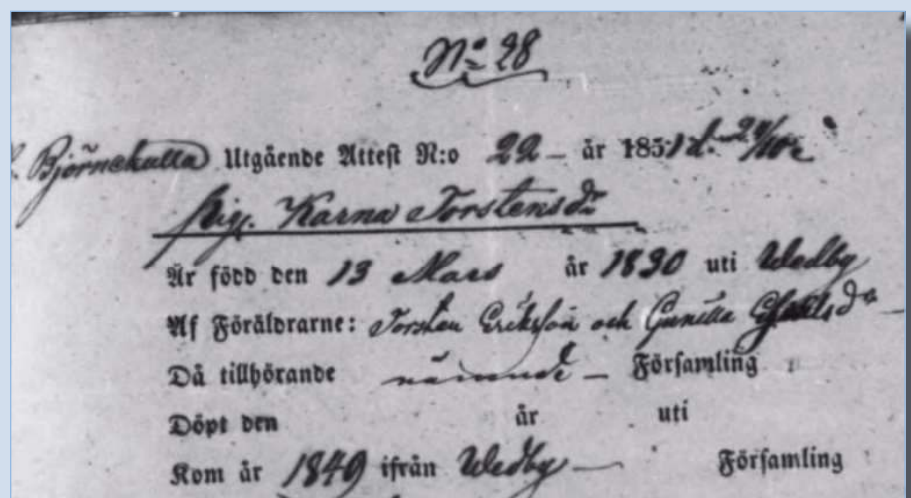 No 28
Björnekulla Utgående Attest N:o 22 – år 1851 d. 24/10
pig. Karna Torstensdr
Är född den 13 Mars år 1830 uti Wedby
Af Föräldrarne: Torsten Erikson och Gunilla
Då tillhörande nämnde – Församling
Döpt den år uti
Kom år 1849 ifrån Wedby – Församling